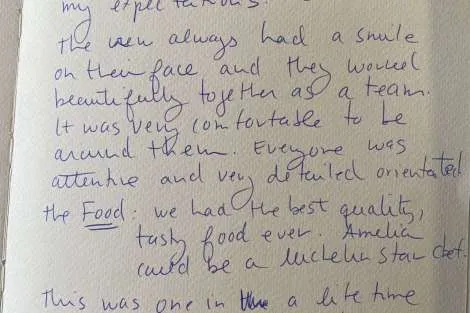 my expectations.
the crew always had a smile
on their face and they worked
beautifully together as a team.
It was very comfortable to be
around them. Everyone was
attentive and very detailed orientated
the Food: we had the best quality,
tasty food ever. Amelia
could be a Michelin Star chef.
This was one in a life time